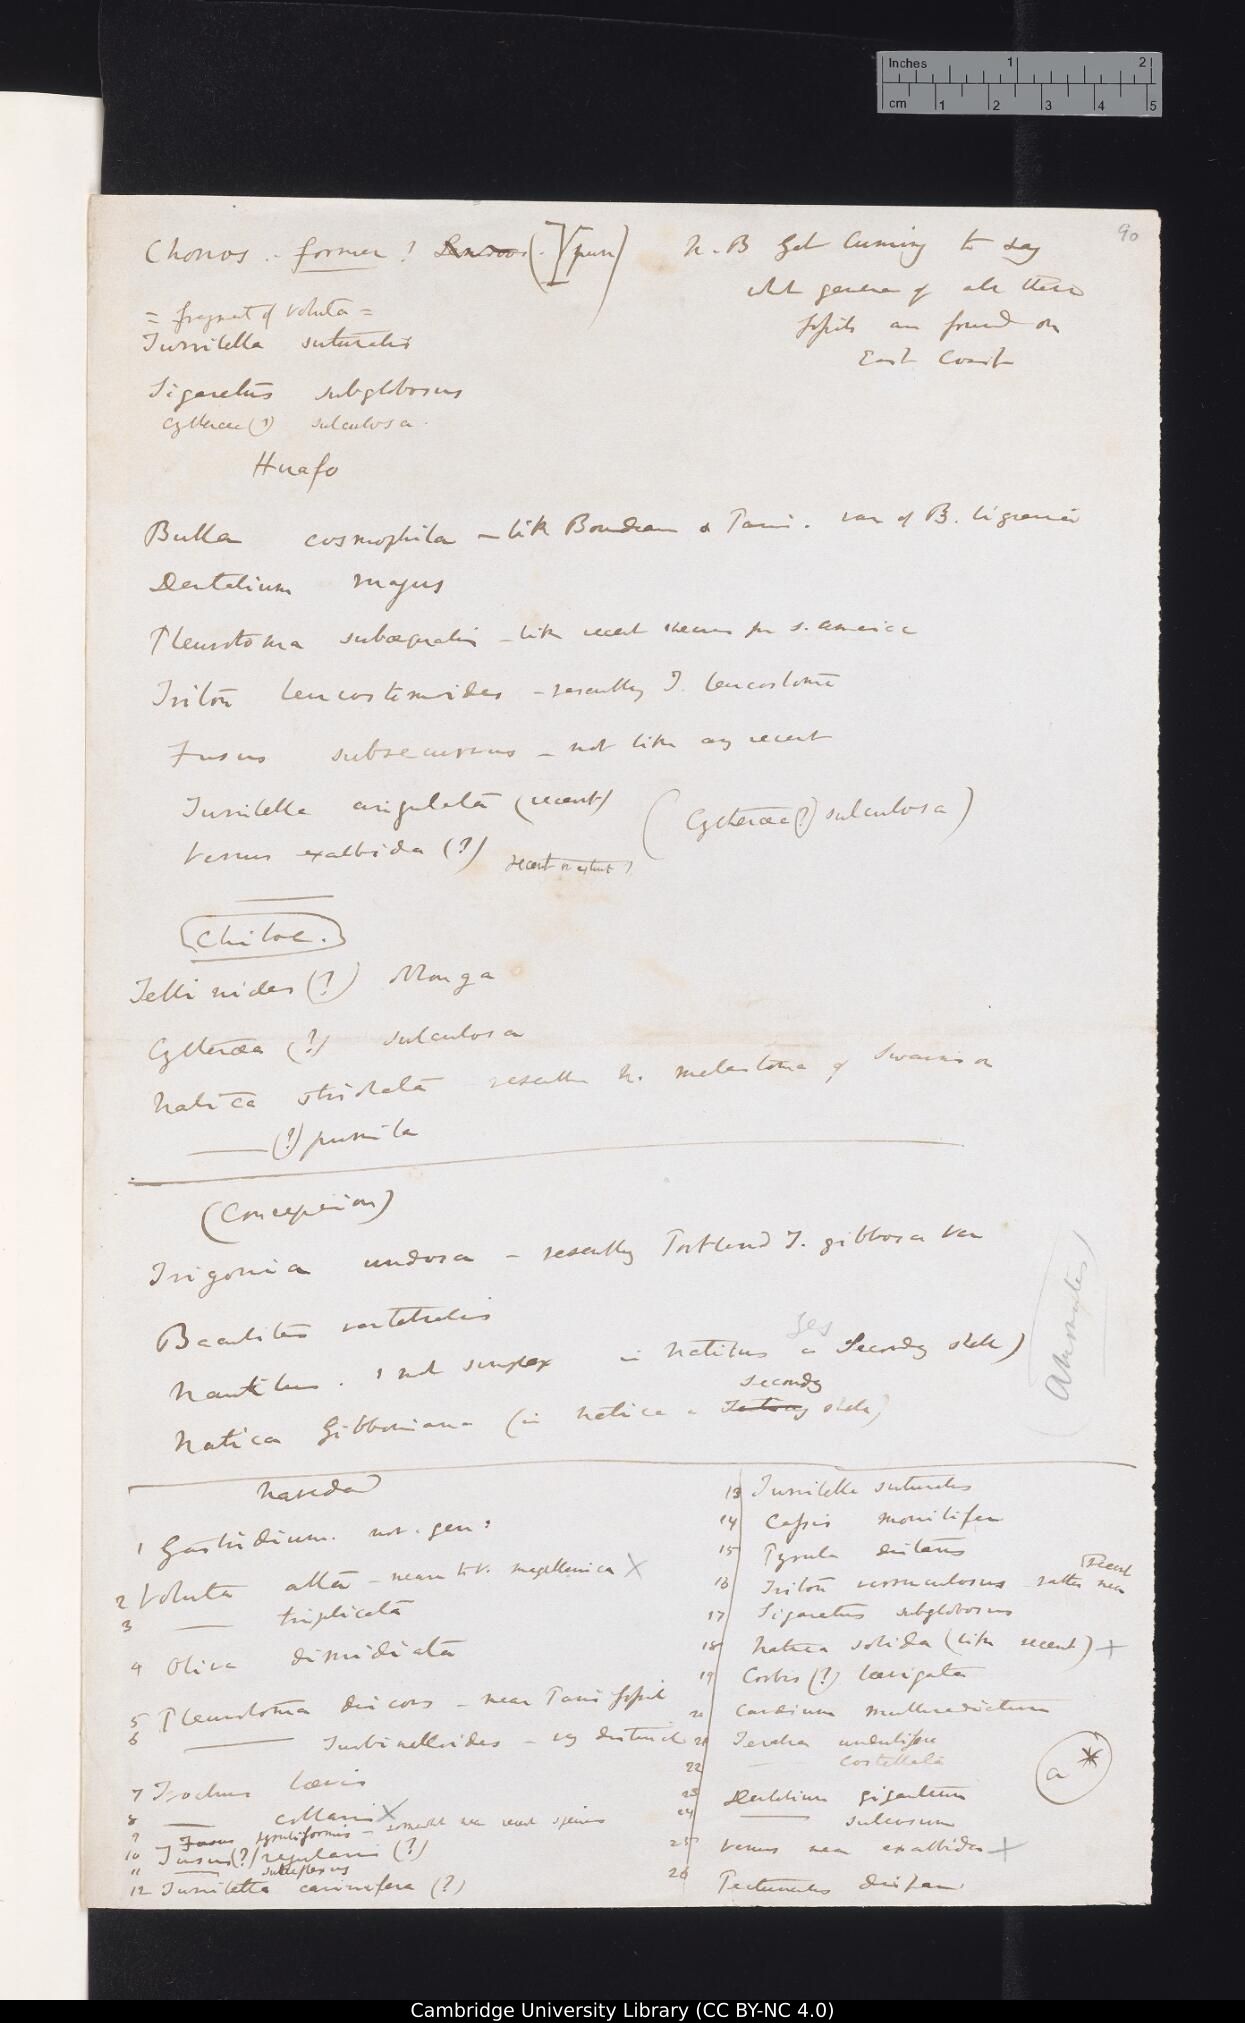 90
Chonos . former ?
N.B Get Cuming to say
what genera of all these
fossils are found on
East Coast
= fragment of Voluta =
Turritella suturalis
Sigaretus subglobosus
Cytheræa (?) sulculosa.
Huafo
Bulla cosmophila — like Bordeaux & Paris. var of B. lignaria
Dentalium majus
Pleurotoma subæqualis — like recent species fr S. America
Triton leucostomoides — resembles T. leucostoma
Fusus subrecurvus — not like any recent
Turritella cingulata (recent)
(Cytheræa (?) sulculosa)
Venus exalbida (?) recent or extinct ?
Chiloe.
Tellinides (?) oblonga
Cytheræa (?) sulculosa
Natica striolata resembles N. melastoma of Swainson
—— (?) pumila
(Concepcion)
Trigonia — resembles Portland T. gibbosa var
Baculites vertebralis
Nautilus . ? not simplex in Nautilus a Secondy shell)
yes
Natica Gibboniana (in Natica a Secondy shell)
(Ammonites)
Navidad
1 Gastridium. nov. gen:
2 Voluta alta — near to V. magellanica X
3 —— triplicata
4 Oliva dimidiata
5 Pleurotoma discors — near Paris fossil
6 —— Turbinelloides — very distinct
7 Trochus lævis
8 —— collaris X
9 Fusus pyruliformis — somewhat near recent species
10 Fusus (?) regularis (?)
11 —— subreflexus
12 Turritella
13 Turritella suturalis
14 Cassis monilifer
15 Pyrula distans
16 Triton verruculosus rather near recent
17 Sigaretus subglobosus
18 Natica solida (like recent) +
19 Corbis (?) lævigata
20 Cardium multiradiatum
21 Terebra undulifera
22 — costellata
23 Dentalium giganteum
24 —— sulcosum
25 Venus near exalbida +
26 Pectunculus dispar
a *
Inches 1 2
cm 1 2 3 4 5
Cambridge University Library (CC BY-NC 4.0)